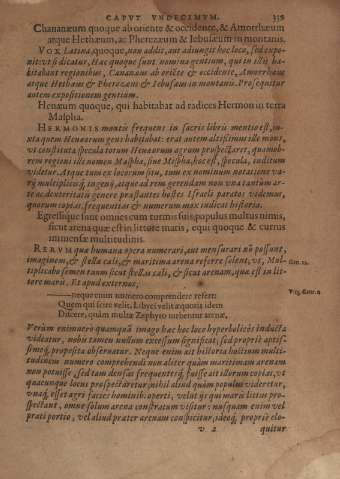 CAPVT VNDECIMVM. 359
Chananæum quoque ab oriente & occidente, & Amorrhæum
atque Hethæum, ac Pherezæum & Iebusæum in montanis.
VOX Latina, quoque, non addit, aut adiungit hoc loco, sed expo-
nit: vt si dicatur, Hæc quoque sunt nomina gentium, quæ in illis ha-
bitabant regionibus, Cananæum ab oriēte & occidente, Amorrhæum
atque Hethæum & Pherezæum & Iebusæum in montanis. Prosequitur
autem expositionem gentium.
Heuæum quoque, qui habitabat ad radices Hermon in terra
Maspha.
HERMONIS montis frequens in sacris libris mentio est, iu-
xta quem Heuæorum gens habitabat: erat autem altissimus ille mons,
vt constituta specula totum Heuæorum agrum prospectaret, quamob-
rem regioni illi nomen Maspha, siue Mispha, hoc est, specula, inditum
videtur. Atque tum ex locorum situ, tum ex nominum notatione va-
rijs multiplicique ingenij, atque ad rem gerendam non vna tantum ar-
te ac dexteritatis genere præstantes hostes Israeli paratos videmus,
quorum copias, frequentias & numerum mox indicat historia.
Egressique sunt omnes cum turmis suis, populus multus nimis,
sicut arena quæ est in littore maris, equi quoque & currus
immensæ multitudinis.
RERVM quæ humana opera numerari, aut mensurari nō possunt,
imaginem, & stellæ cæli, & maritima arena referre solent, vt, Mul-
tiplicabo semen tuum sicut stellas cæli, & sicut arenam, quæ est in lit-
tore maris. Et apud externos;
Gen. 22.
neque enim numero comprendere refert:
Quem qui scire velit, Libyci velit æquoris idem
Dicere, quàm multæ Zephyro turbentur arenæ,
Virg. Geor. 2.
Verùm enimuerò quamquā imago hæc hoc loco hyperbolicῶs inducta
videatur, nobis tamen nullum excessum significat; sed proprijs aptis-
simeque proposita obseruatur. Neque enim ait historia hostium multi-
tudinem numero comprehendi non aliter quàm maritimam arenam
non potuisse, sed tam densas frequentesque fuisse ait illorum copias, vt
quacunque locus prospectaretur, nihil aliud quàm populus videretur,
vnaque esset agri facies hominib. operti, velut ijs qui maris littus pro-
spectant, omne solum arena constratum visitur: nusquam enim vel
prati portio, vel aliud præter arenam conspicitur, ideoque propriè elo-
v 2 quitur